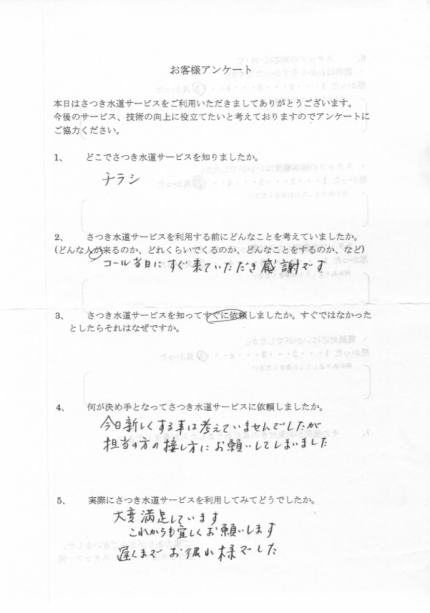 お客様アンケート
本日はさつき水道サービスをご利用いただきましてありがとうございます。
今後のサービス、技術の向上に役立てたいと考えておりますのでアンケートに
ご協力ください。
1、 どこでさつき水道サービスを知りましたか。
チラシ
2、 さつき水道サービスを利用する前にどんなことを考えていましたか。
(どんな人が来るのか、どれくらいでくるのか、どんなことをするのか、など)
コール当日にすぐ来ていただき感謝です
3、 さつき水道サービスを知ってすぐに依頼しましたか。すぐではなかった
としたらそれはなぜですか。
4、 何が決め手となってさつき水道サービスに依頼しましたか。
今日新しくする事は考えていませんでしたが
担当の方の接し方にお願いしてしまいました
5、 実際にさつき水道サービスを利用してみてどうでしたか。
大変満足しています
これからも宜しくお願いします
遅くまでお疲れ様でした